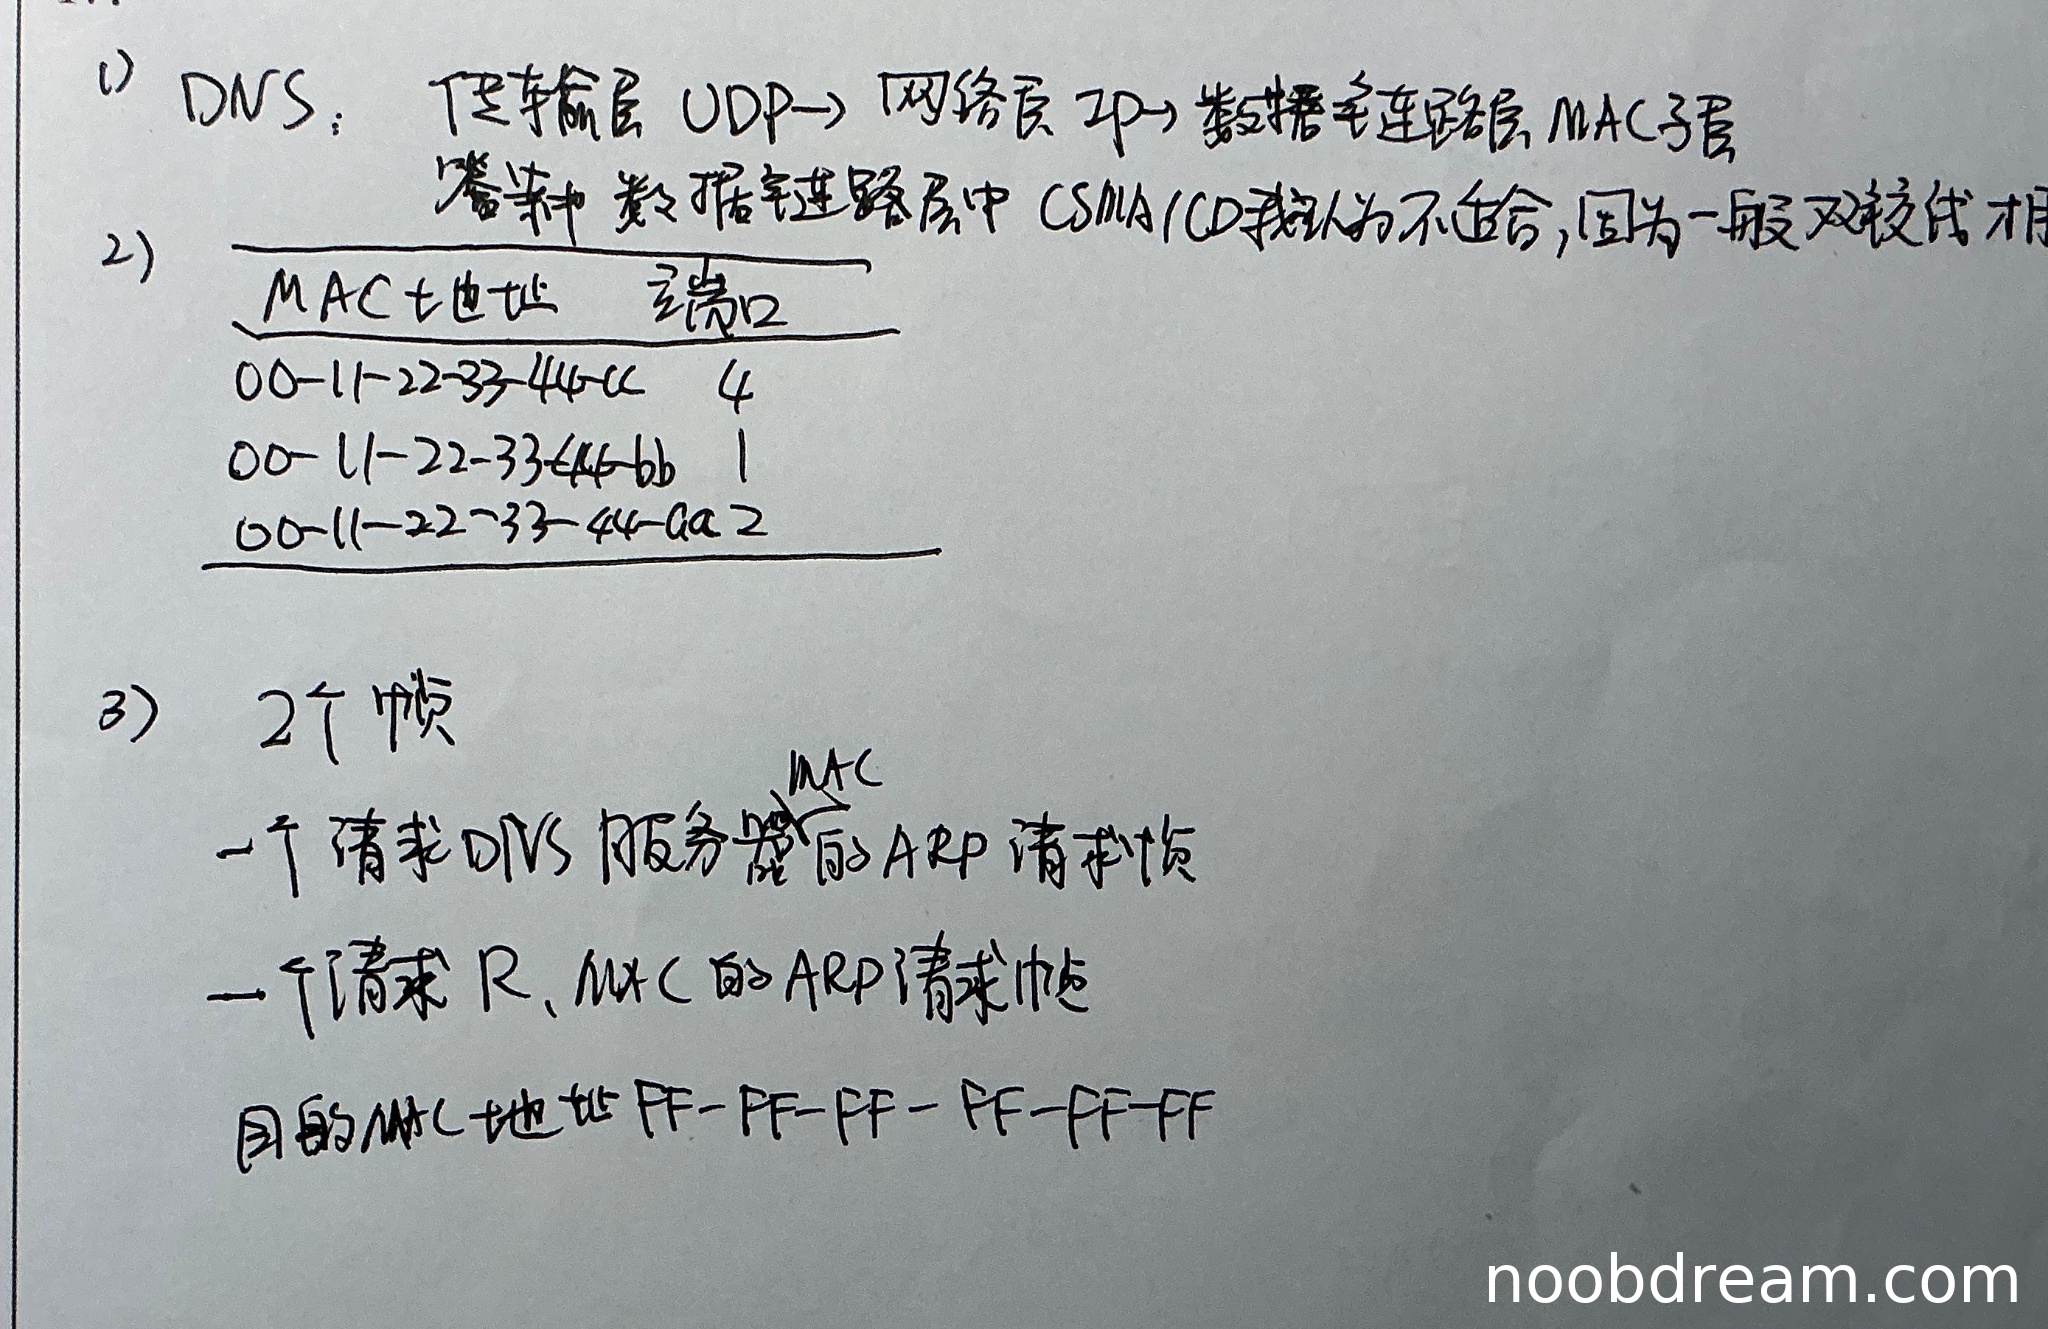 1) DNS: 传输层 UDP→ 网络层 IP→ 数据链路层 MAC子层
答案中 数据链路层中 CSMA/CD我认为不适合,因为一般双绞线才用
2)
MAC地址 端口
00-11-22-33-44-cc 4
00-11-22-33-44-bb 1
00-11-22-33-44-aa 2
3) 2个帧
MAC
一个请求DNS服务器的ARP请求帧
一个请求 R、MAC 的ARP请求帧
目的MAC地址 FF-FF-FF-FF-FF-FF
noobdream.com